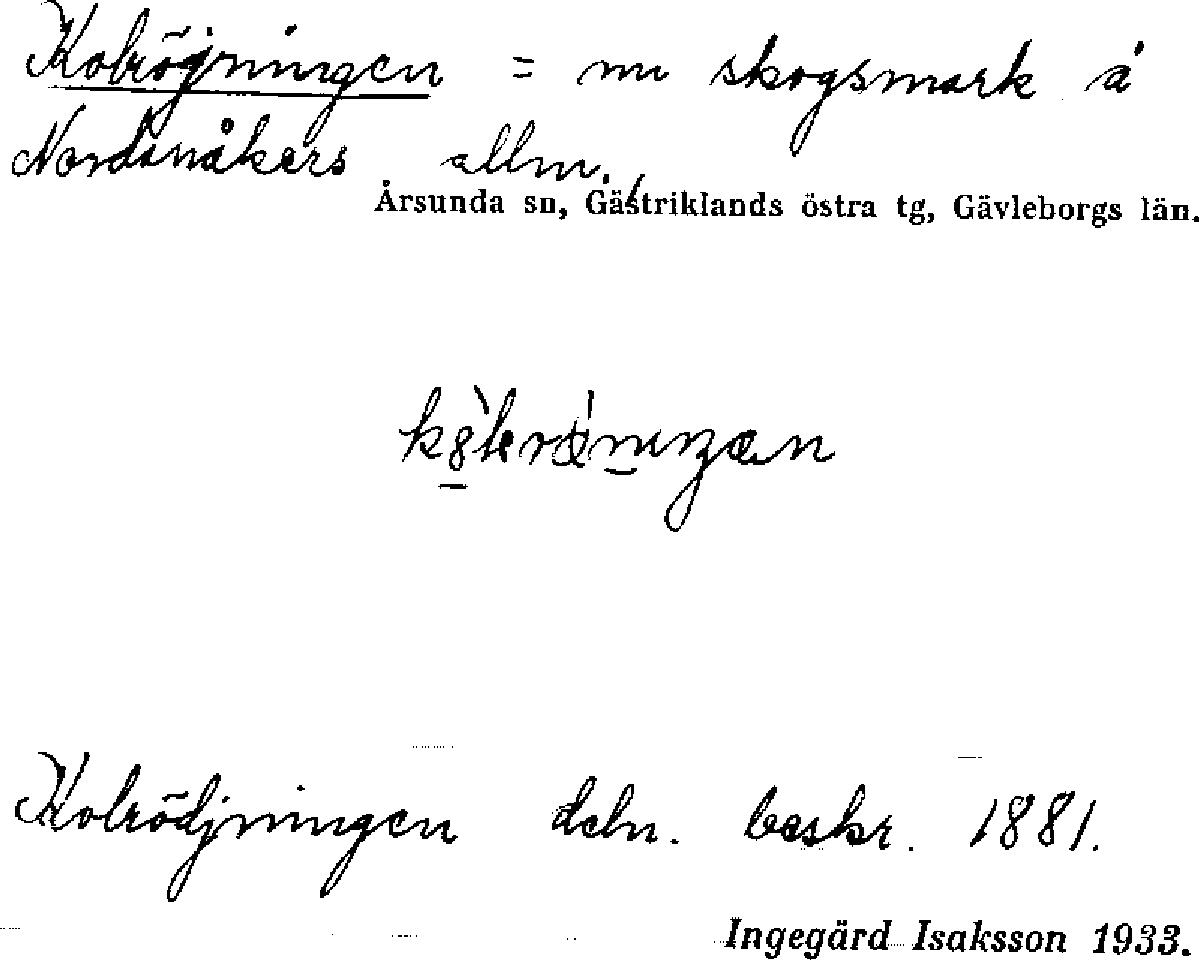 Kolröjningen = nu skogsmark å
Nordanåkers allm.
Årsunda sn, Gästriklands östra tg, Gävleborgs län.
Kolrödjningen deln. beskr. 1881.
Ingegärd Isaksson 1933.